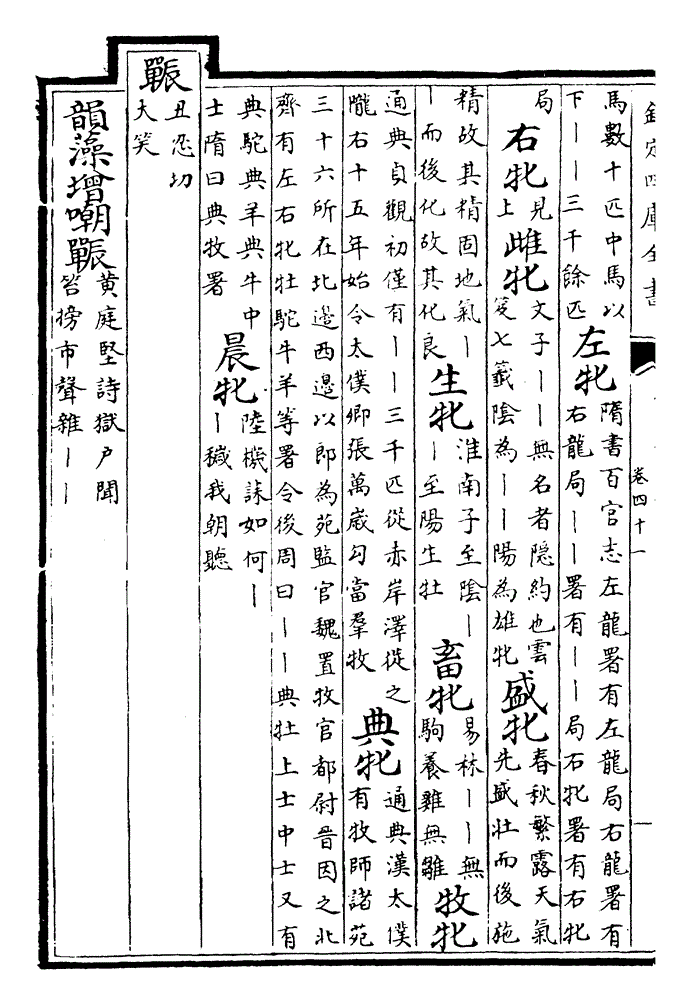 欽定四庫全書
卷四十一
馬數十匹中馬以
下丨丨三千餘匹
左牝
隋書百官志左龍署有左龍局右龍署有
右龍局丨丨署有丨丨局右牝署有右牝
局
右牝
見
上
雌牝
文子丨丨無名者隠約也雲
笈七籖陰為丨丨陽為雄牝
盛牝
春秋繁露天氣
先盛壮而後施
精故其精固地氣丨
丨而後化故其化良
生牝
淮南子至陰丨
丨至陽生牡
畜牝
易林丨丨無
駒養雞無雛
牧牝
通典貞觀初僅有丨丨三千匹從赤岸澤從之
隴右十五年始令太僕卿張萬嵗勾當羣牧
典牝
通典漢太僕
有牧師諸苑
三十六所在北邊西邊以郎為苑監官魏置牧官都尉晉因之北
齊有左右牝牡駝牛羊等署令後周曰丨丨典牡上士中士又有
典駝典羊典牛中
士隋曰典牧署
晨牝
陸機誄如何丨
丨穢我朝聽
囅
丑忍切
大笑
韻藻增嘲囅
黄庭堅詩獄户聞
笞搒市聲雜丨丨